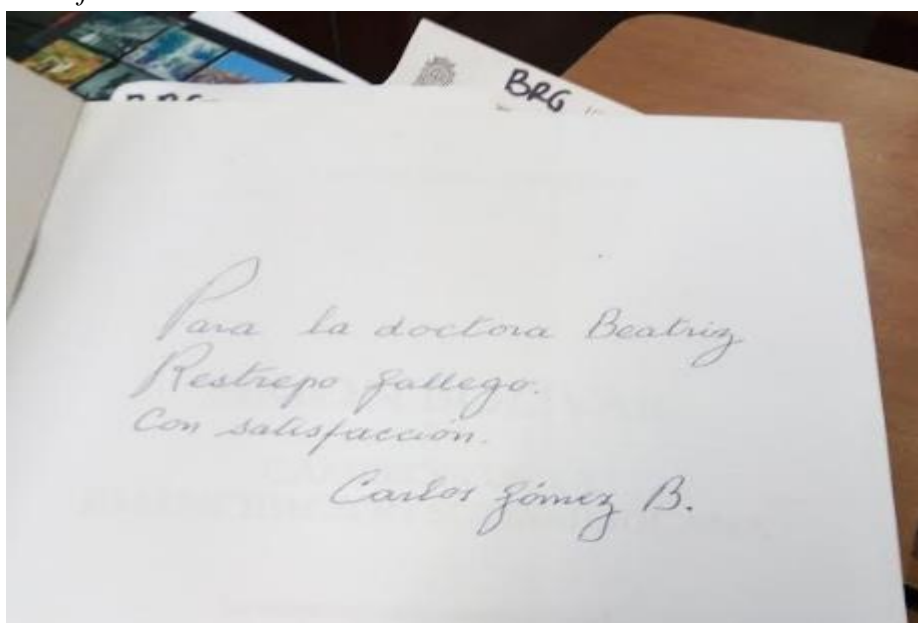 BRG
Para la doctora Beatriz
Restrepo Gallego.
Con satisfacción.
Carlos Gómez B.